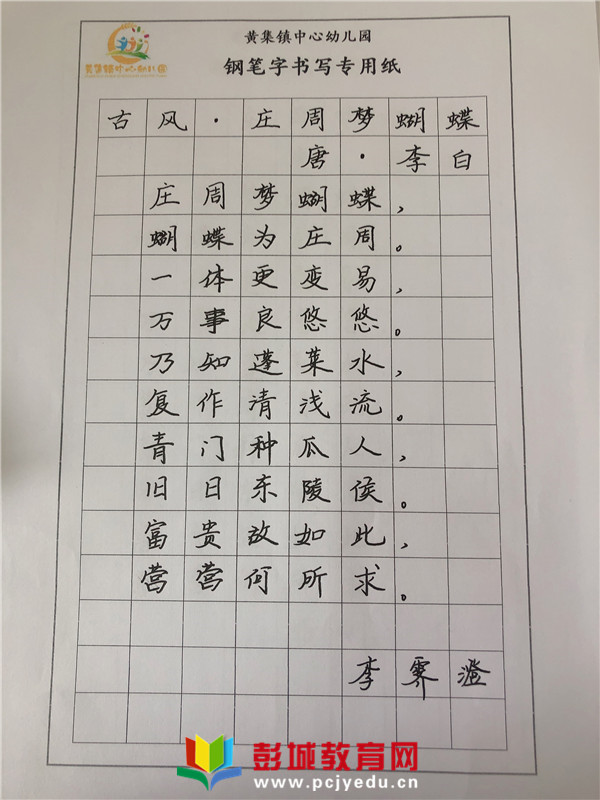 黄集镇中心幼儿园
黄集镇中心幼儿园
钢笔字书写专用纸
古风·庄周梦蝴蝶
唐·李白
庄周梦蝴蝶，
蝴蝶为庄周。
一体更变易，
万事良悠悠。
乃知蓬莱水，
复作清浅流。
青门种瓜人，
旧日东陵侯。
富贵故如此，
营营何所求。
李霁澄
彭城教育网
www.pcjyedu.cn